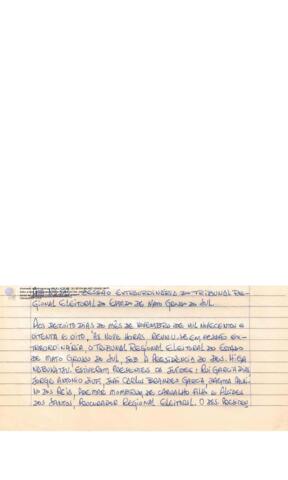 SESSÃO EXTRAORDINÁRIA DO TRIBUNAL RE-
GIONAL ELEITORAL DO ESTADO DE MATO GROSSO DO SUL.
AOS DEZOITO DIAS DO MÊS DE NOVEMBRO DE MIL NOVECENTOS E
OITENTA E OITO, ÀS NOVE HORAS, REUNIU-SE EM SESSÃO EX-
TRAORDINÁRIA, O TRIBUNAL REGIONAL ELEITORAL DO ESTADO
DE MATO GROSSO DO SUL, SOB A PRESIDÊNCIA DO DES. HIGA
NABUKATSU. ESTIVERAM PRESENTES OS JUÍZES: RUI GARCIA DIAS,
JORGE ANTONIO SIUFI, JOÃO CARLOS BRANDES GARCIA,
DOS REIS, DE CARVALHO FILHO E ALCIDES
DOS SANTOS, PROCURADOR REGIONAL ELEITORAL. O DES. PRESIDEN